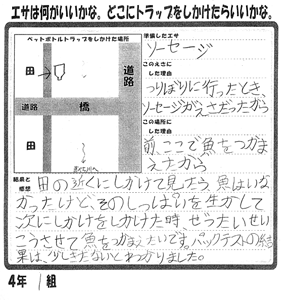 エサは何がいいかな。どこにトラップをしかけたらいいかな。
ペットボトルトラップをしかけた場所
田
道路
道路
橋
田
準備したエサ
ソーセージ
このえさにした理由
つりぼりに行ったとき、
ソーセージがえさだったから
この場所にした理由
前、ここで魚をつかま
えたから
結果と感想
田の近くにしかけて見たら、魚はいな
かったけど、そのしっぱいを生かして
次にしかけをしかけた時、ぜったいせい
こうさせて魚をつかまえたいです。パックテストの結
果は、少しきたないとわかりました。
4年 1組